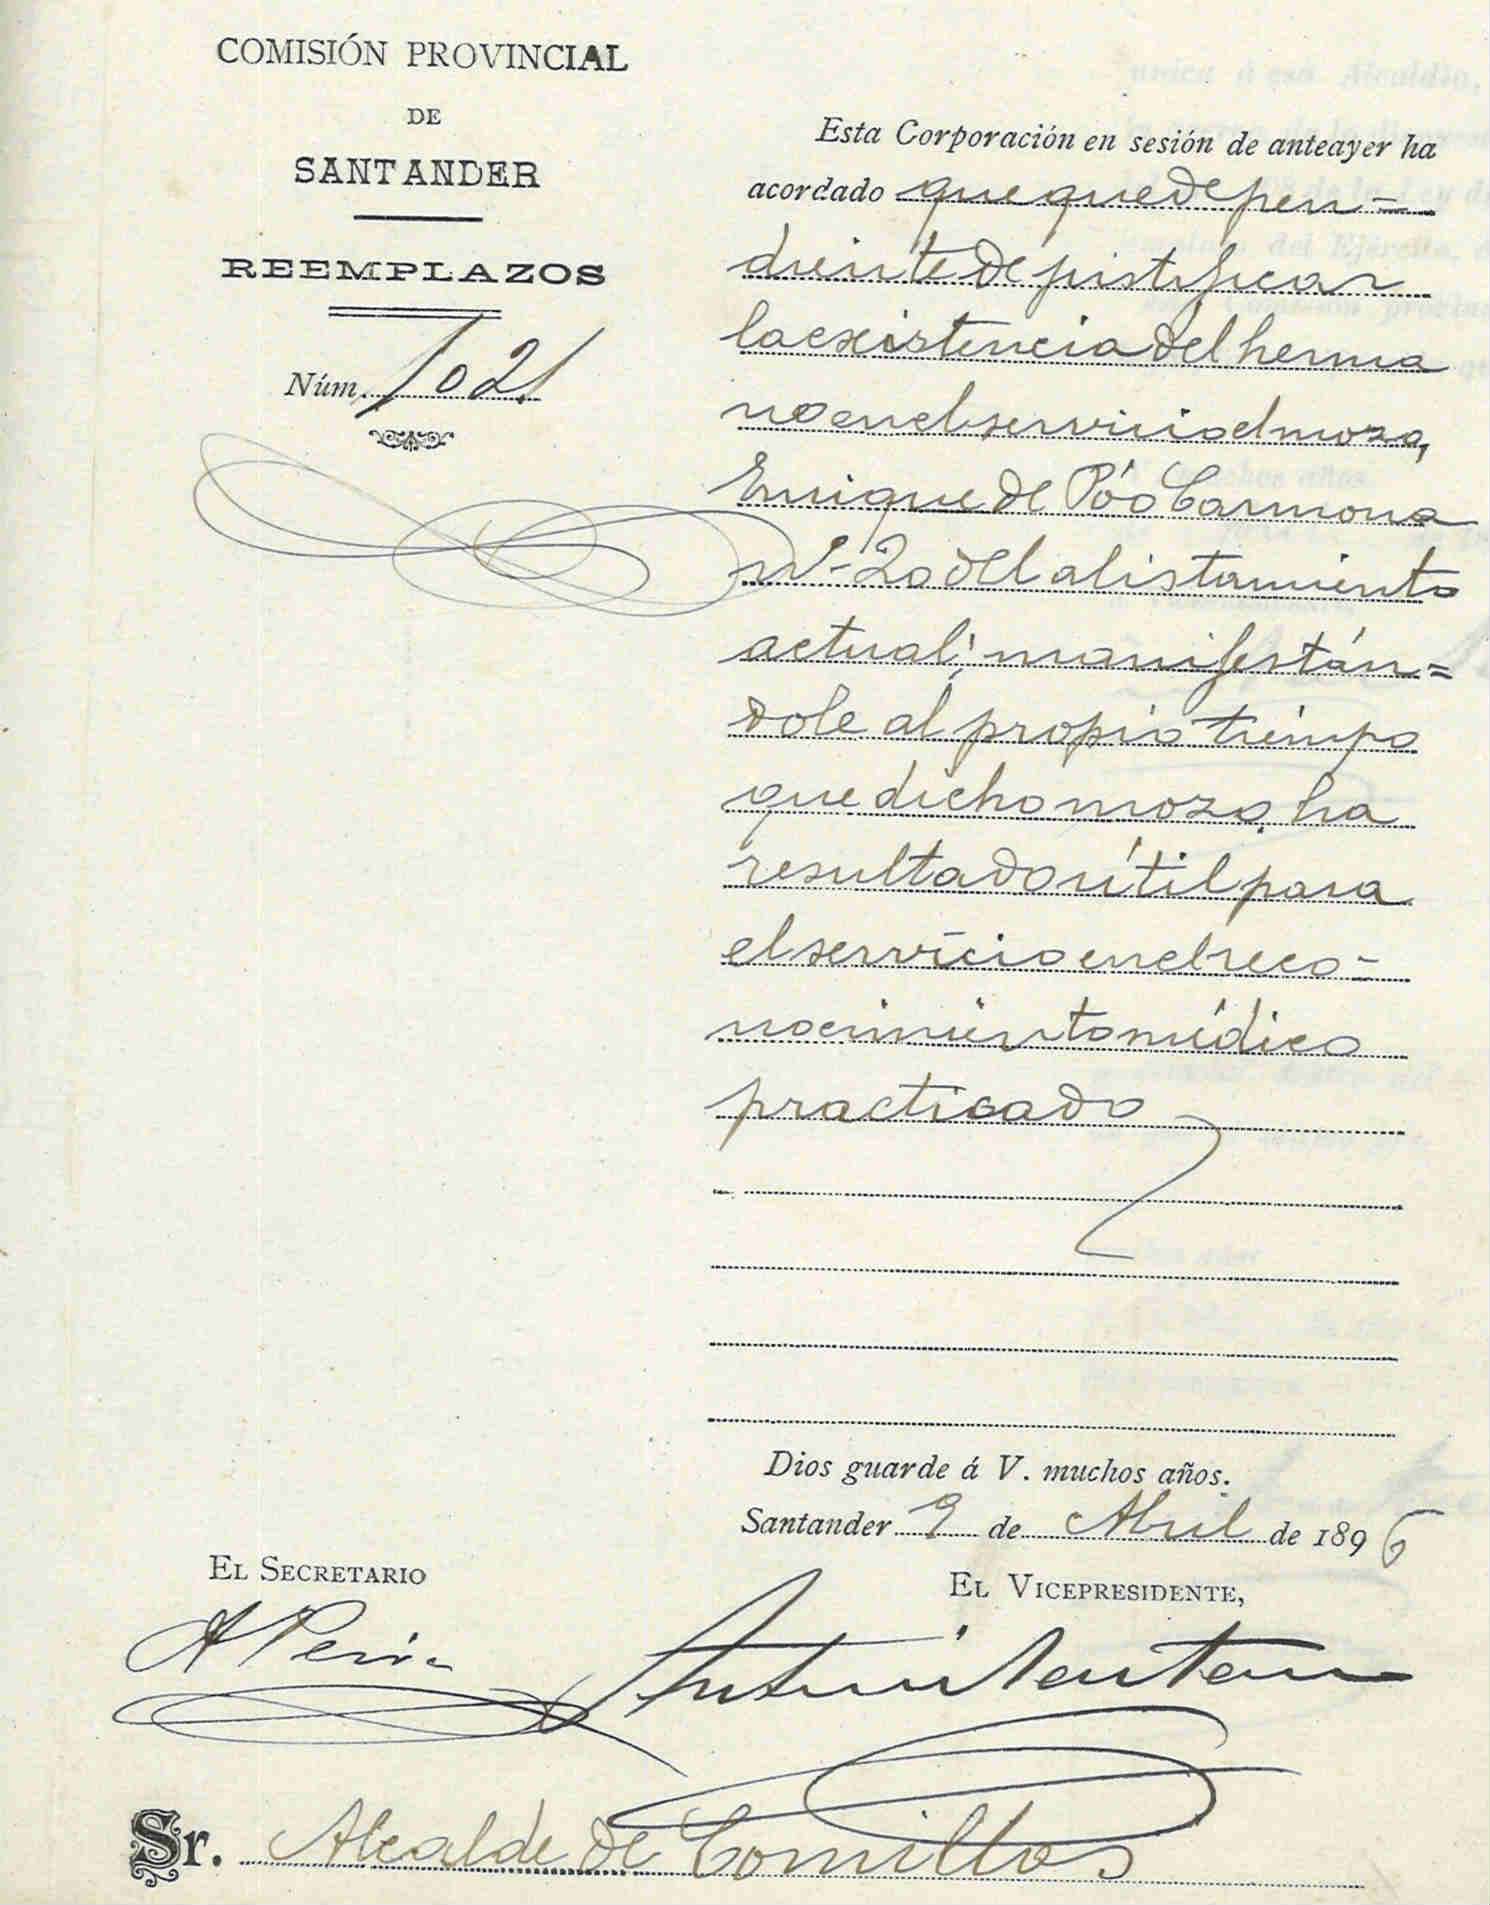 COMISIÓN PROVINCIAL
DE
SANTANDER
REEMPLAZOS
Núm. 1021
Esta Corporación en sesión de anteayer ha
acordado que quede pen-
diente de justificar
la existencia del herma
no en el servicio el mozo,
Enrique de Póo Carmona
nº 20 del alistamiento
actual; manifestán=
dole al propio tiempo
que dicho mozo, ha
resultado útil para
el servicio en el reco-
nocimiento médico
practicado
Dios guarde á V. muchos años.
Santander 9 de Abril de 1896
EL SECRETARIO
EL VICEPRESIDENTE,
A
Sr. Alcalde de Comillas